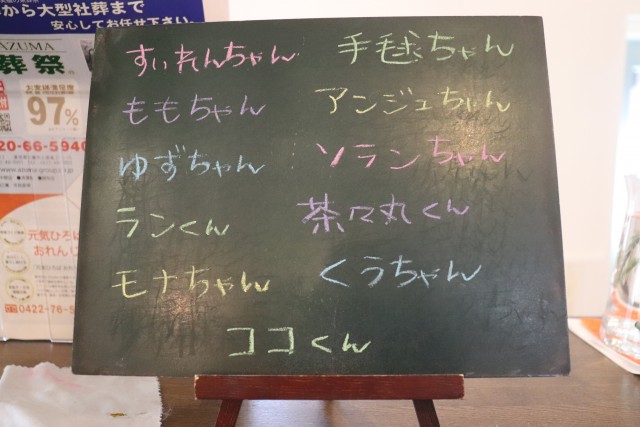 から大型社葬まで
安心してお任せ下さい。
NZUMA
葬祭
97%
20-66-5940
元気ひろば
おれんじ
0422-76-5
すいれんちゃん
手毬ちゃん
ももちゃん
アンジュちゃん
ゆずちゃん
ソランちゃん
ランくん
茶々丸くん
モナちゃん
くうちゃん
ココくん